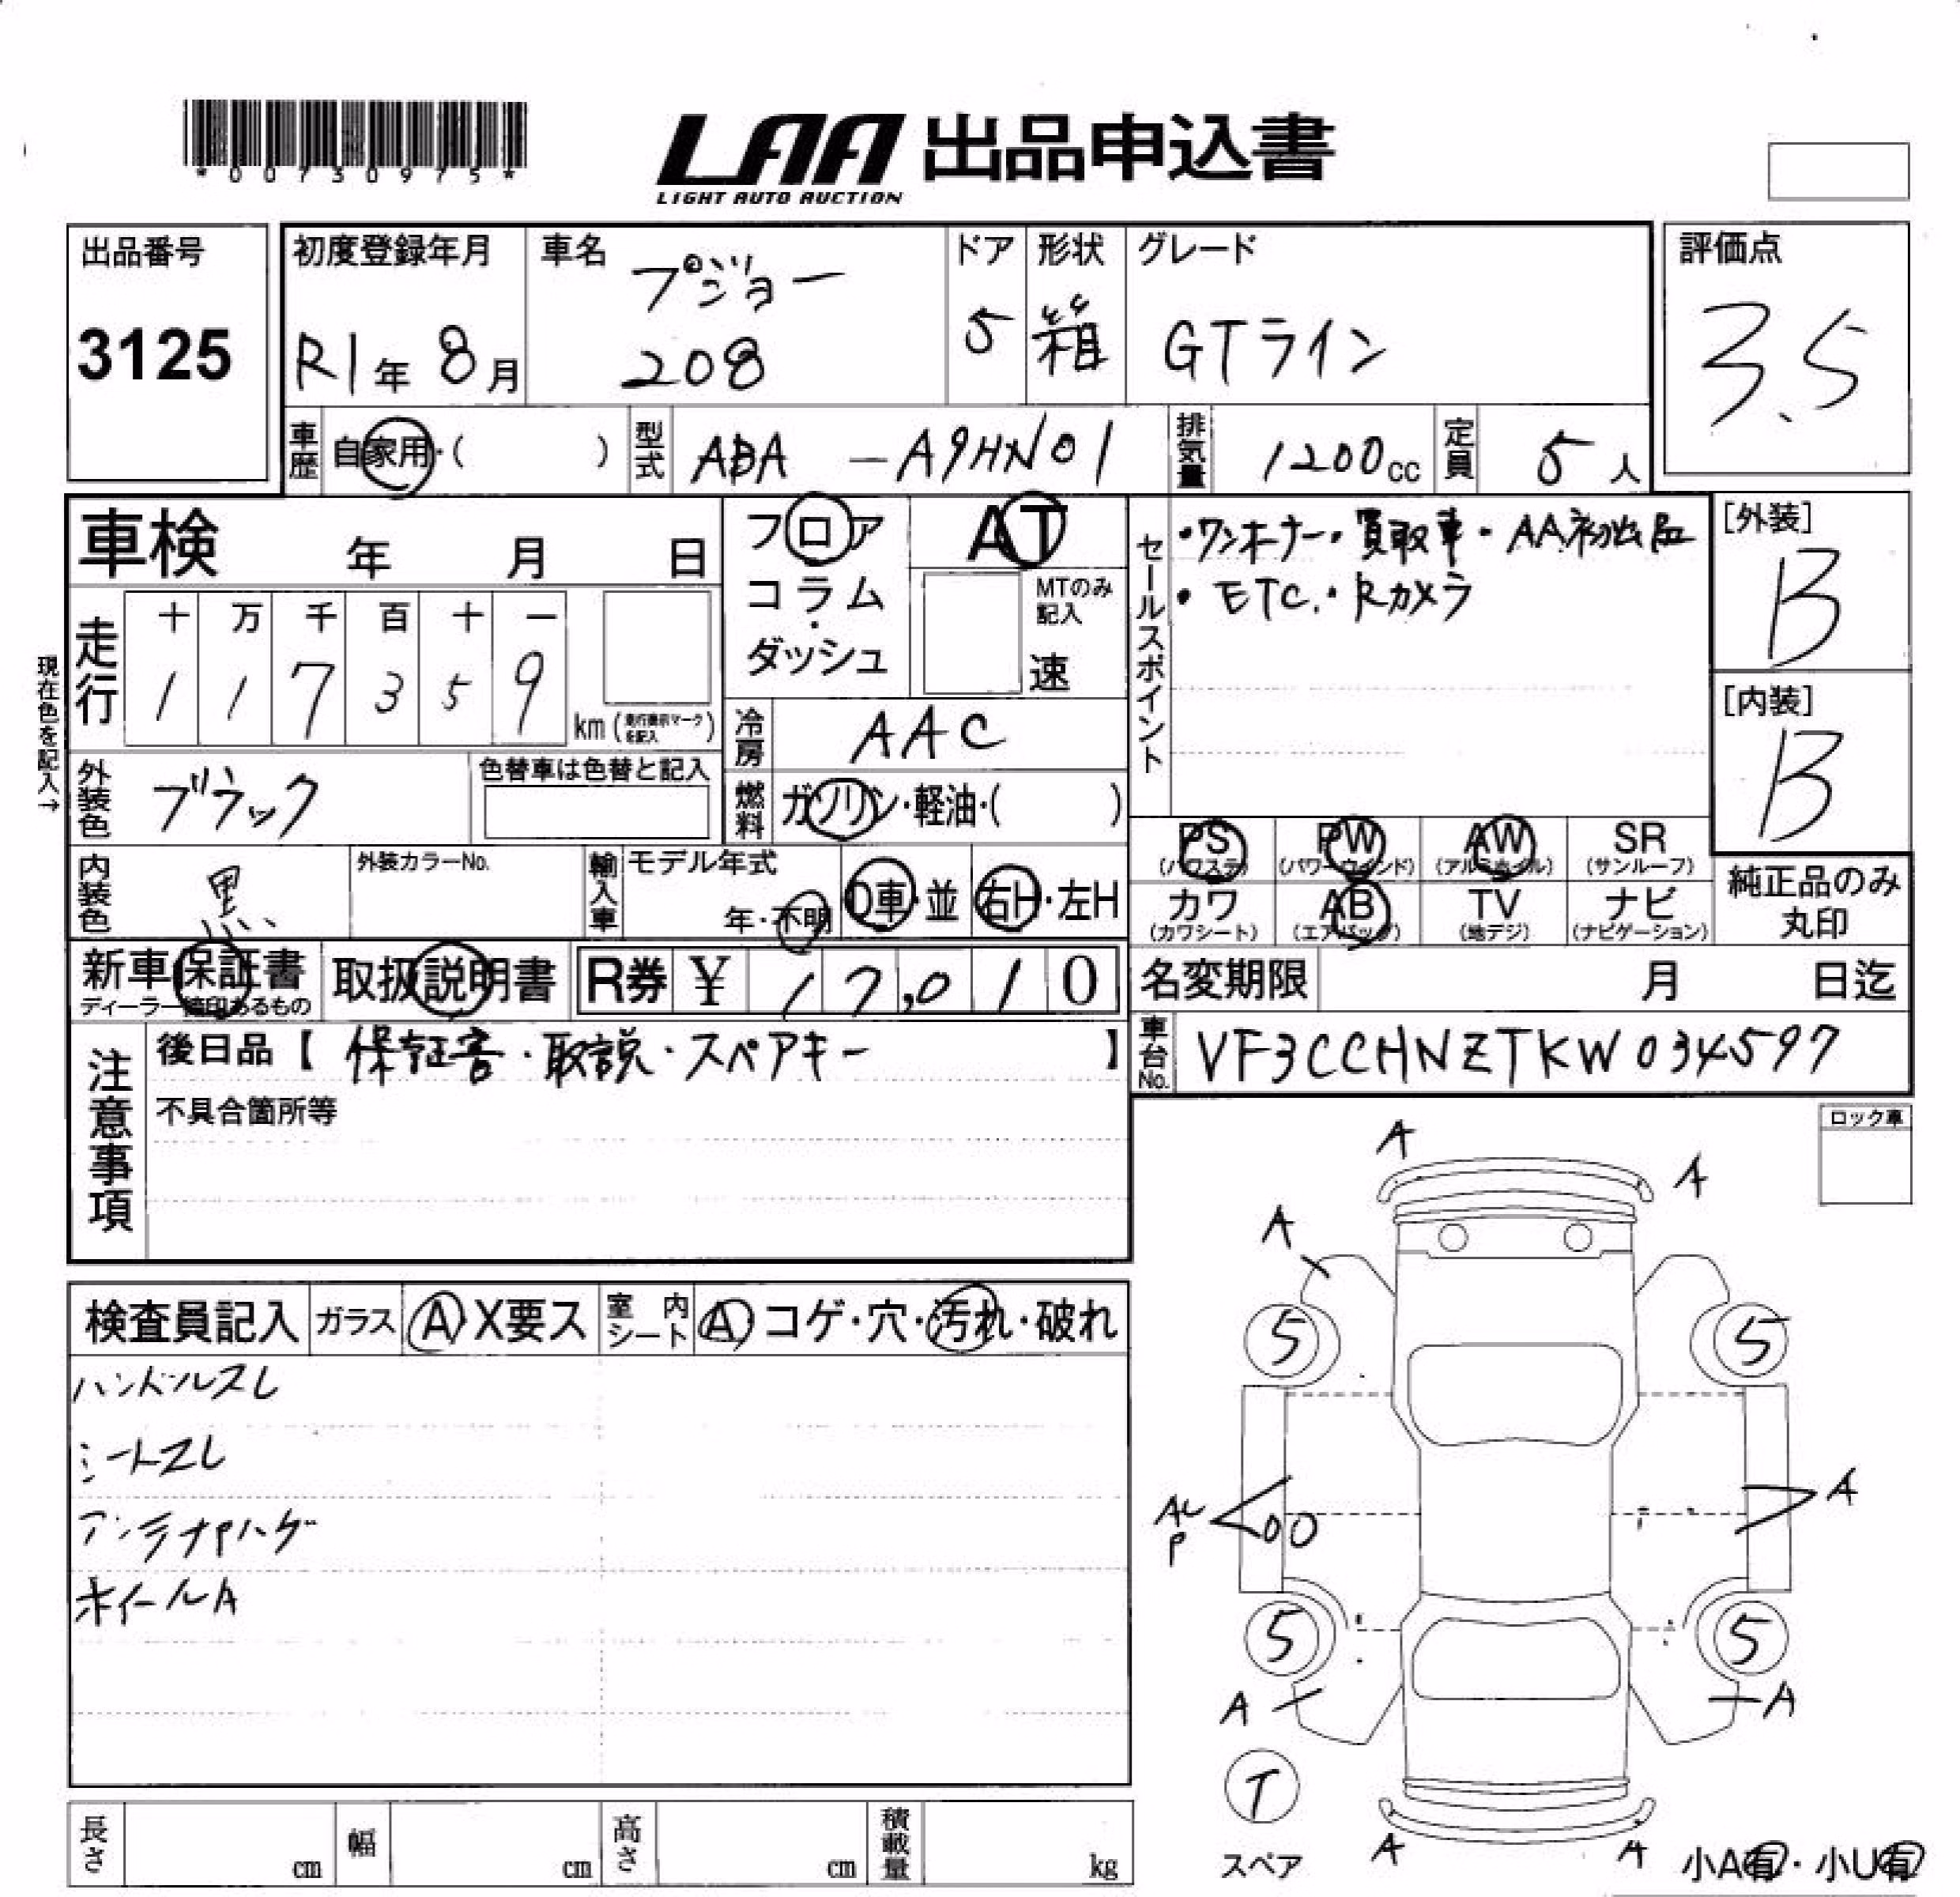 *00730975*
LAA 出品申込書
LIGHT AUTO AUCTION
出品番号
3125
初度登録年月
R1年 8月
車名
プジョー
208
ドア
5
形状
箱
グレード
GTライン
評価点
3.5
車歴 自家用・( )
型式 ABA - A9HN01
排気量 1200cc
定員 5人
車検 年 月 日
フロア
コラム・
ダッシュ
AT
MTのみ記入
速
セールスポイント
・ワンオーナー・買取車・AA初出品
・ETC.・Rカメラ
[外装]
B
[内装]
B
現在色を記入→
走行
十 万 千 百 十 一
1 1 7 3 5 9
km (走行表示マークを記入)
冷房 AAC
外装色 ブラック
色替車は色替と記入
燃料 ガソリン・軽油・( )
PS (パワステ)
PW (パワーウインド)
AW (アルミホイル)
SR (サンルーフ)
カワ (カワシート)
AB (エアバッグ)
TV (地デジ)
ナビ (ナビゲーション)
純正品のみ
丸印
内装色 黒
外装カラーNo.
輸入車
モデル年式
年・不明
D車・並
右H・左H
新車保証書
ディーラー捺印あるもの
取扱説明書
R券 ¥ 17,010
名変期限 月 日迄
注意事項
後日品【 保証書・取説・スペアキー 】
車台No. VF3CCHNZTKW034597
不具合箇所等
ロック車
検査員記入
ガラス A X要ス
室内シート A コゲ・穴・汚れ・破れ
ハンドルスレ
シートスレ
アンテナPハゲ
ホイールA
A
A
A
5
5
AU
P
A
5
5
A
A
T
スペア
A
A
小A有・小U有
長さ cm
幅 cm
高さ cm
積載量 kg